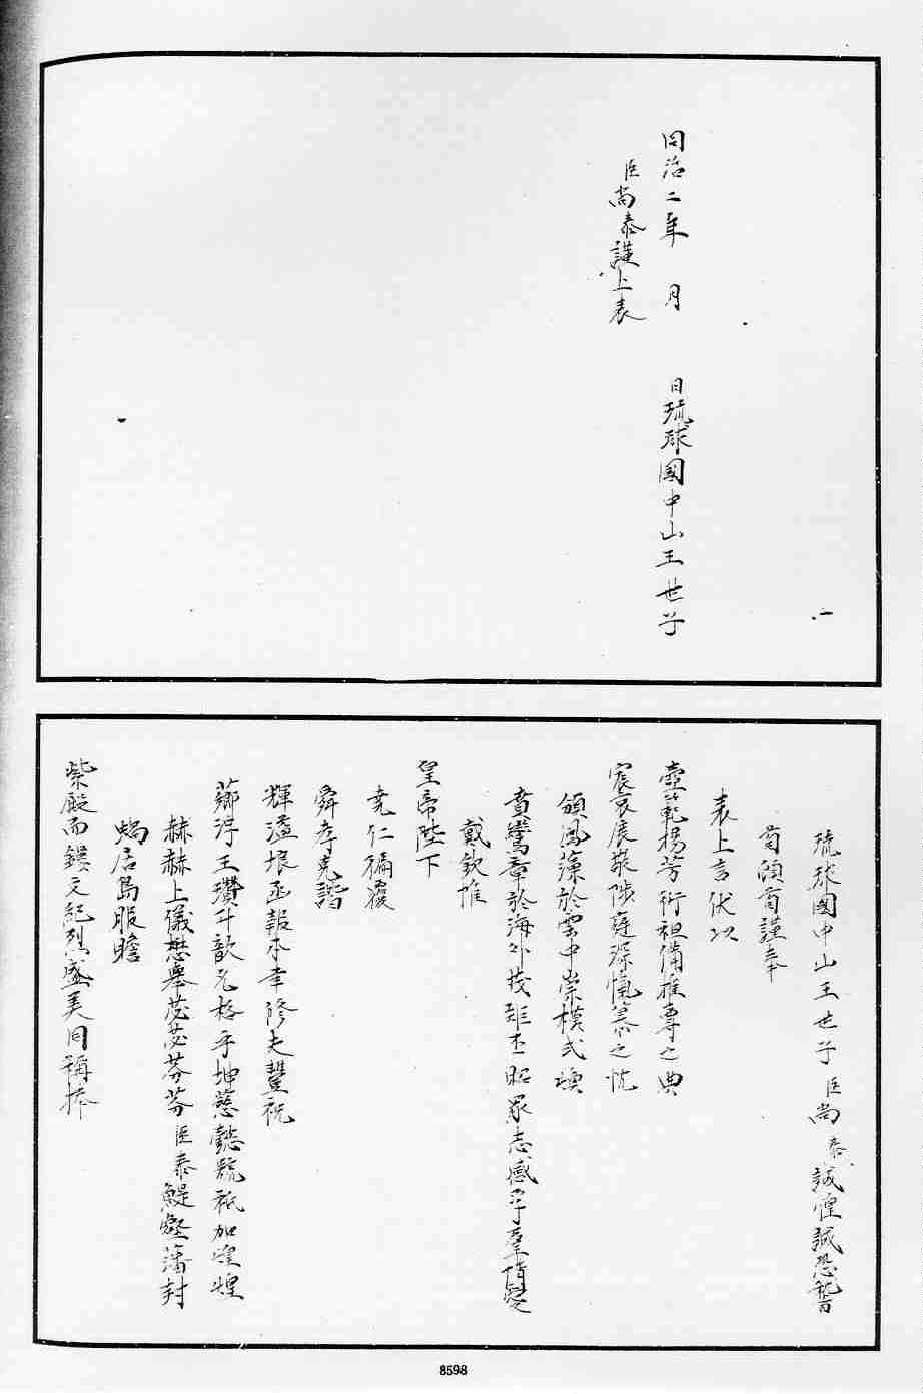 同治二年　月　　日琉球國中山王世子
臣尚泰謹上表
琉球國中山王世子臣尚泰誠惶誠恐稽
首頓首謹奉
表上言伏以
壼範揚芳術祖備推尊之典
宸哀展敬陟庭深愾慕之忱
頒鳳藻於雲中崇模式煥
賁鸞章於海外茂昭眾志感孚羣情變
戴欽惟
皇帝陛下
堯仁徧覆
舜孝克諧
輝溢垠函報本聿修夫豐祀
薌浮玉瓚升歆允格乎坤慈懿號祗加煌煌
赫赫上儀懋舉苾苾芬芬臣泰鯷壑藩封
蝸居島服瞻
紫殿而鏤文紀烈盛美同稱捧
8598